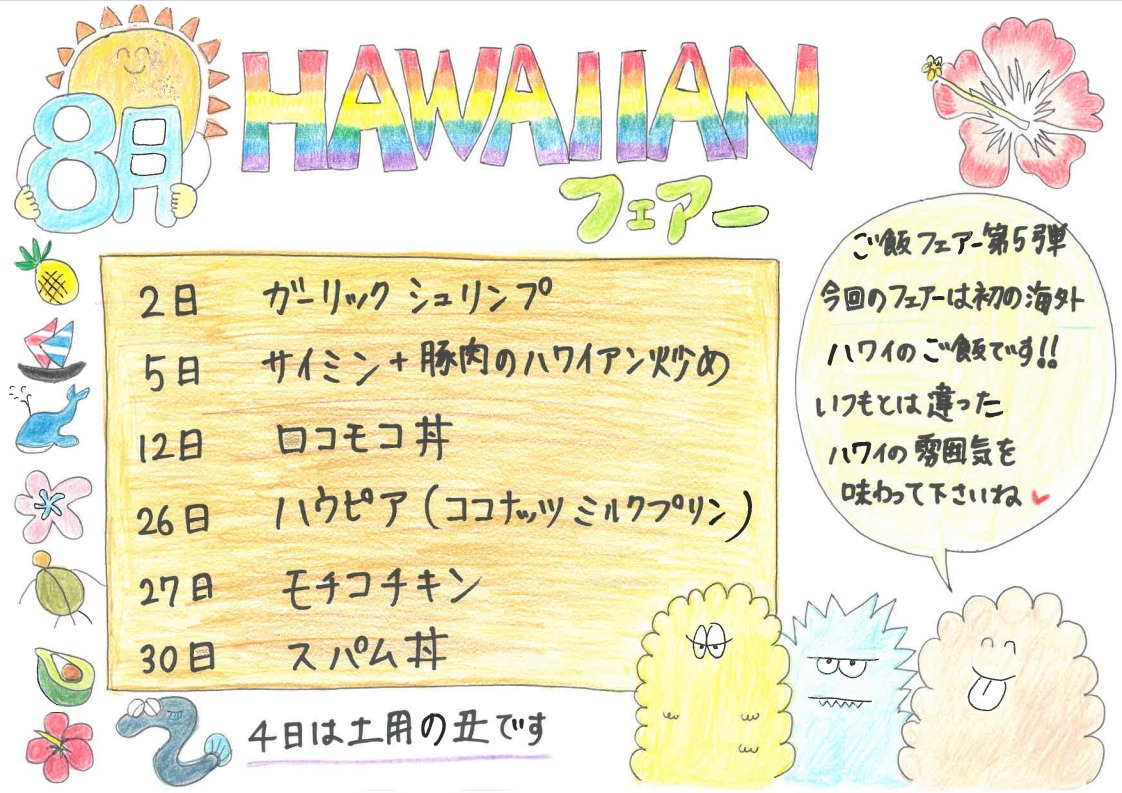 8月
HAWAIIAN
フェアー
2日 ガーリック シュリンプ
5日 サイミン+豚肉のハワイアン炒め
12日 ロコモコ丼
26日 ハウピア(ココナッツミルクプリン)
27日 モチコチキン
30日 スパム丼
4日は土用の丑です
ご飯フェアー第5弾
今回のフェアーは初の海外
ハワイのご飯です!!
いつもとは違った
ハワイの雰囲気を
味わって下さいね